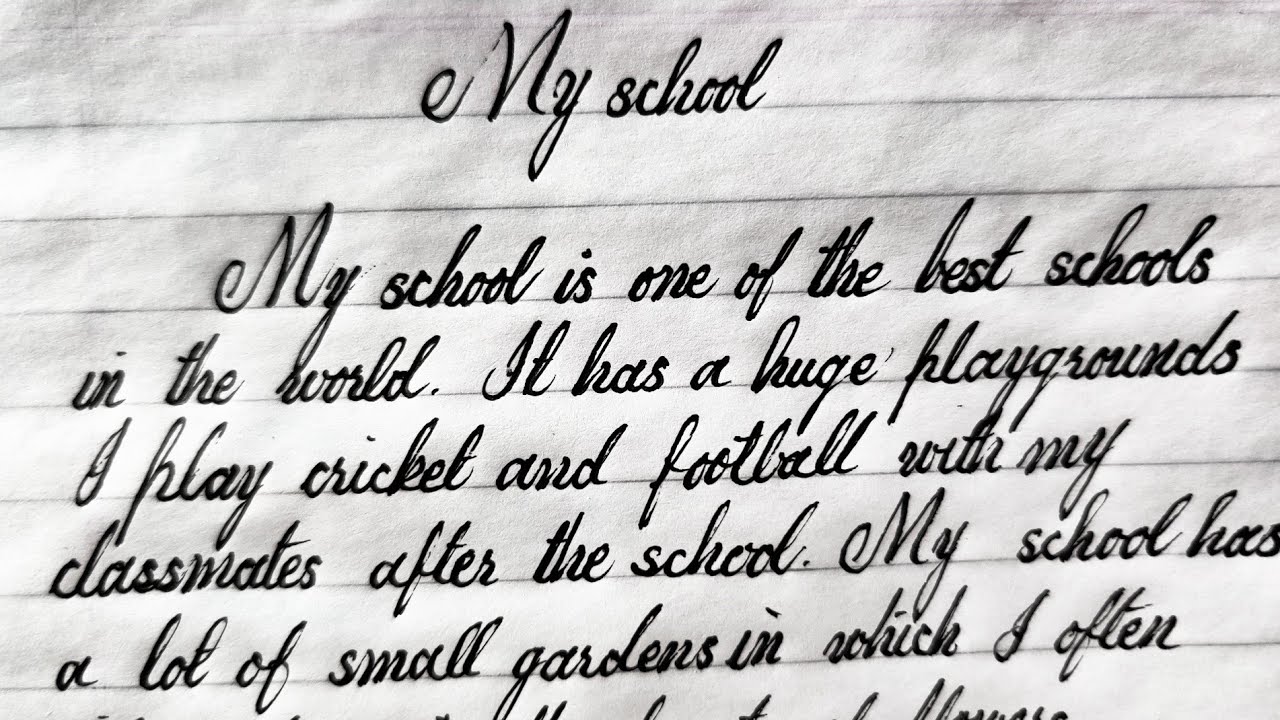 My school
My school is one of the best schools
in the world. It has a huge playgrounds
I play cricket and football with my
classmates after the school. My school has
a lot of small gardens in which I often
flowers